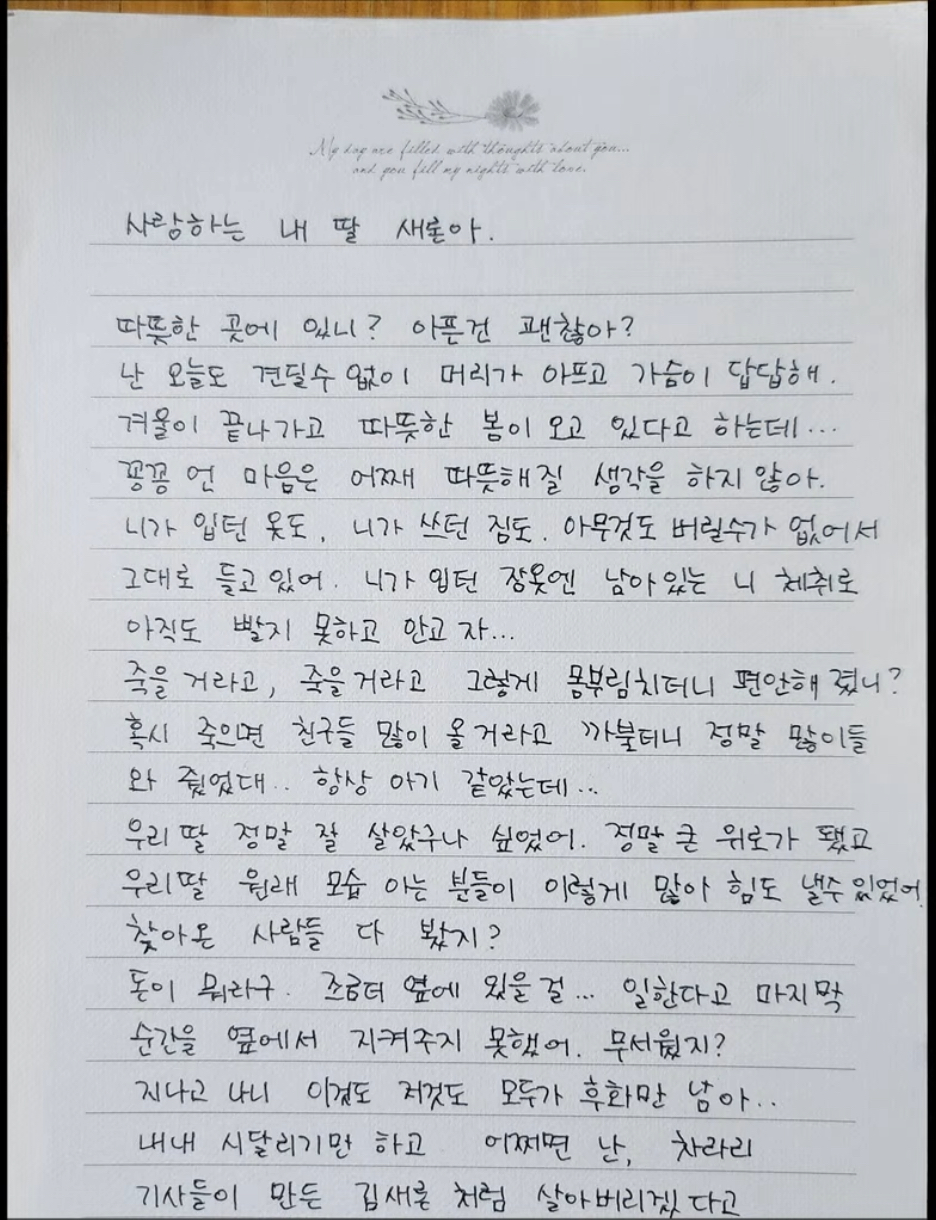 My day are filled with thoughts about you...
and you fill my nights with love.
사랑하는 내 딸 새론아.
따뜻한 곳에 있니? 아픈건 괜찮아?
난 오늘도 견딜수 없이 머리가 아프고 가슴이 답답해.
겨울이 끝나가고 따뜻한 봄이 오고 있다고 하는데...
꽁꽁 언 마음은 어째 따뜻해질 생각을 하지 않아.
니가 입턴 옷도, 니가 쓰던 짐도. 아무것도 버릴수가 없어서
그대로 들고 있어. 니가 입턴 잠옷엔 남아있는 니 체취로
아직도 빨지 못하고 안고 자...
죽을 거라고, 죽을거라고 그렇게 몸부림치더니 편안해 졌니?
혹시 죽으면 친구들 많이 올거라고 까불더니 정말 많이들
와 줬었대.. 항상 아기 같았는데...
우리 딸 정말 잘 살았구나 싶었어. 정말 큰 위로가 됐고
우리딸 원래 모습 아는 분들이 이렇게 많아 힘도 낼수 있었어.
찾아온 사람들 다 봤지?
돈이 뭐라구. 조금더 옆에 있을걸... 일한다고 마지막
순간을 옆에서 지켜주지 못했어. 무서웠지?
지나고 나니 이것도 저것도 모두가 후회만 남아..
내내 시달리기만 하고 어쩌면 난, 차라리
기사들이 만든 김새론 처럼 살아버리겠다고